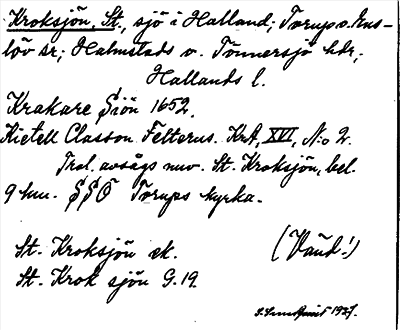 Kroksjön, St., sjö i Halland; Torup o. Ens-
löv sr; Halmstads o. Tönnersjö hdr,
Hallands l.
Krakare Siön 1652.
Kietell Classon Felterus. KrA, XVI, N:o 2.
Trol. avsågs nuv. St. Kroksjön, bel.
9 km. SSO Torups kyrka.
St. Kroksjön ek.
(Vänd!)
St. Krok sjön G. 19.
1927.